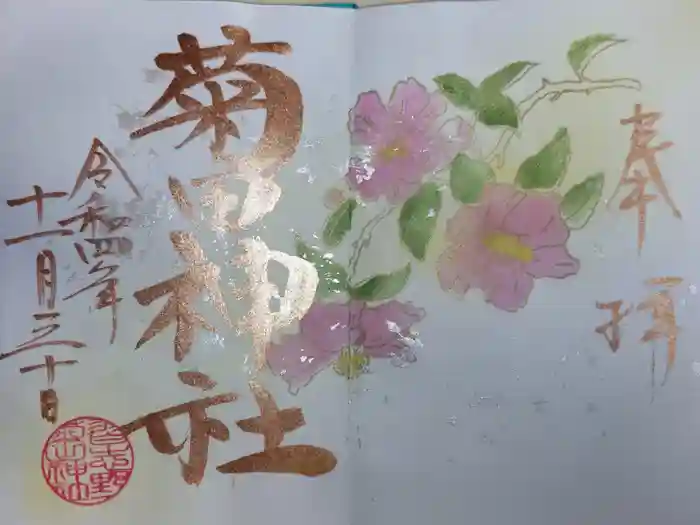 奉拝
菊田神社
令和四年
十一月三十日